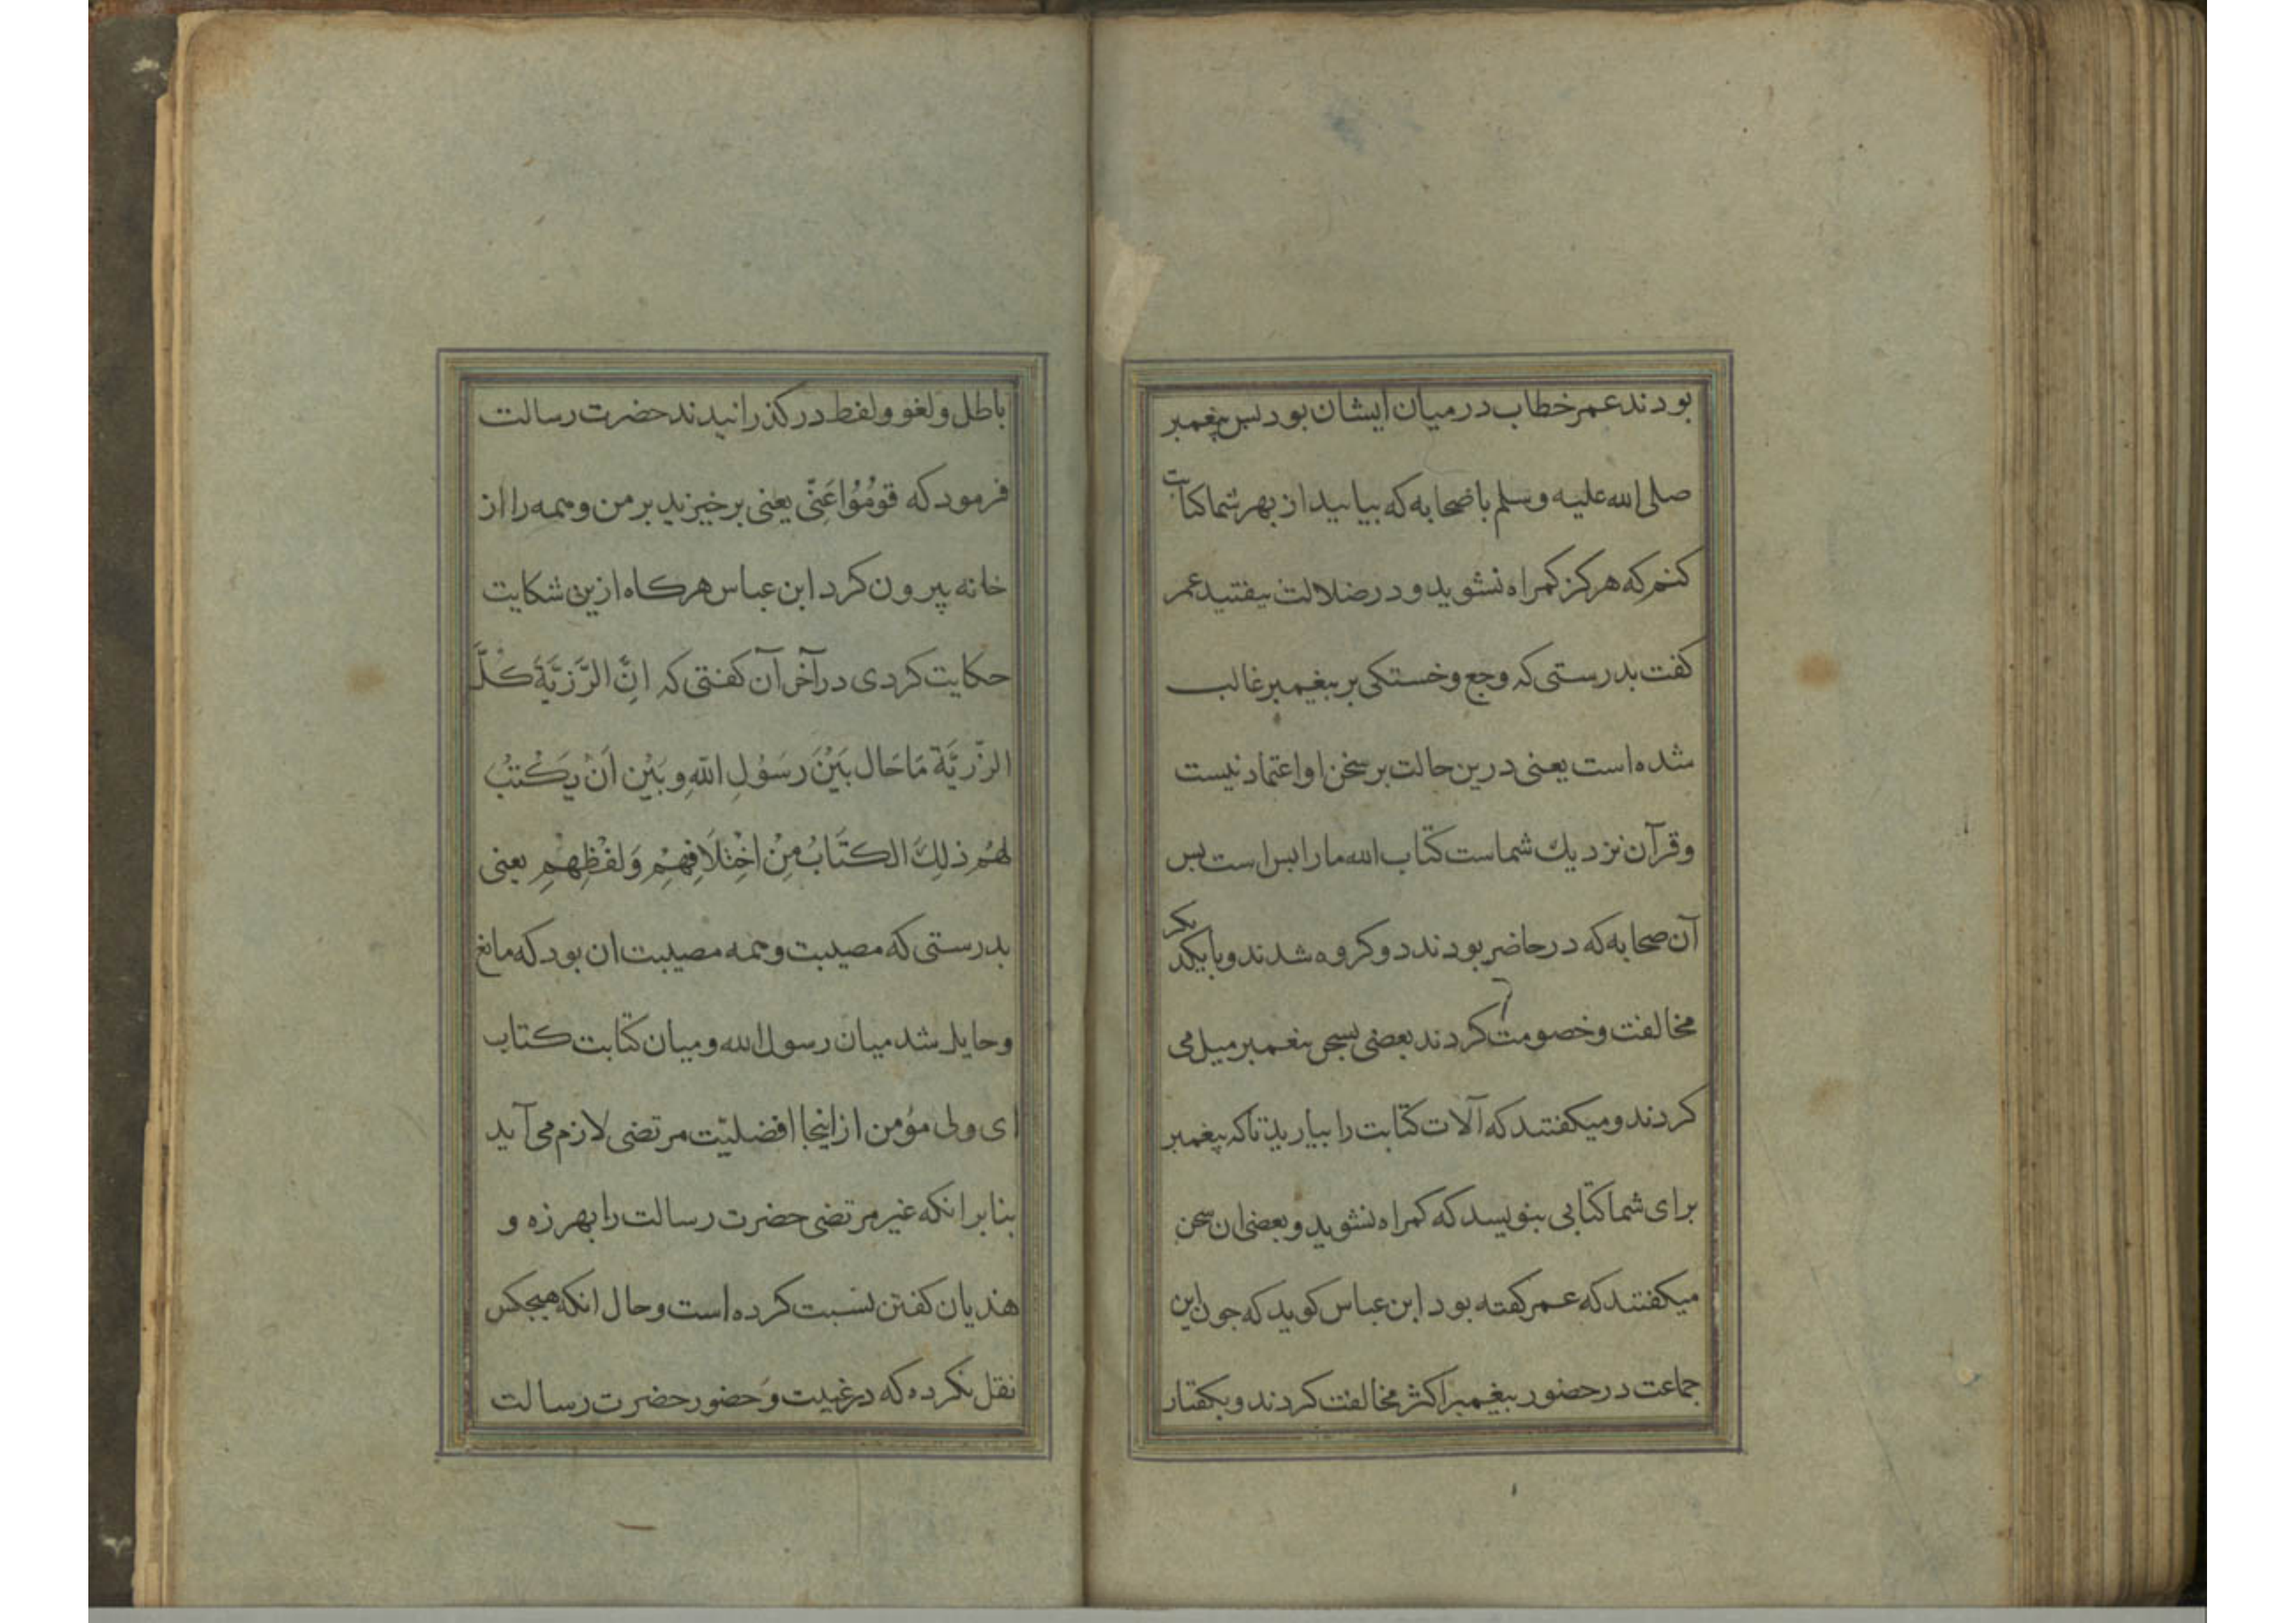 بودند عمر خطاب در میان ایشان بود بس پیغمبر
صلی الله علیه وسلم باضحابه که بیایید از بهر شما کتابت
کنم که هرکز کمراه نشوید و در ضلالت نیفتید عمر
کفت بدرستی که وجع و خستکی بر بیغمبر غالب
شده است یعنی درین حالت بر سخن او اعتماد نیست
وقرآن نزدیك شماست کتاب الله ما را بس است بس
آن صحابه که در حاضر بودند دو کروه شدند و با یکدیکر
مخالفت وخصومت کردند بعضی بسخن بیغمبر میل می
کردند و میکفتند که آلات کتابت را بیارید تا که پیغمبر
برای شما کتابی بنویسد که کمراه نشوید و بعضی ان سخن
میکفتند که عمر کفته بود ابن عباس کوید که جون این
جماعت در حضور بیغمبر اکثر مخالفت کردند و بکفتار
باطل و لغو و لفط در کذرانیدند حضرت رسالت
فرمود که قُومُوُا عَنِّی یعنی برخیزید بر من و همه را از
خانه پیرون کرد ابن عباس هرکاه ازین شکایت
حکایت کردی در آخر آن کفتی که اِنَّ الرَّزِیَّةَ کُلَّ
الرَّزِیَّة مَا حَال بَیْنَ رَسَوُلِ اللّٰهِ و بَیْن اَنْ یَکْتبُ
لهُم ذلِكَ الکتَابُ مِنْ اخْتِلَافِهِمْ وَ لفْظِهِمْ یعنی
بدرستی که مصیبت و همه مصیبت ان بود که مانع
و حایل شد میان رسول الله و میان کتابت کتاب
ای ولی مؤمن از اینجا افضلیّت مرتضی لازم می آید
بنابر انکه غیر مرتضی حضرت رسالت را بهرزه و
هذیان کفتن نسبت کرده است و حال انکه هیجکس
نقل نکرده که در غیبت وَ حضور حضرت رسالت